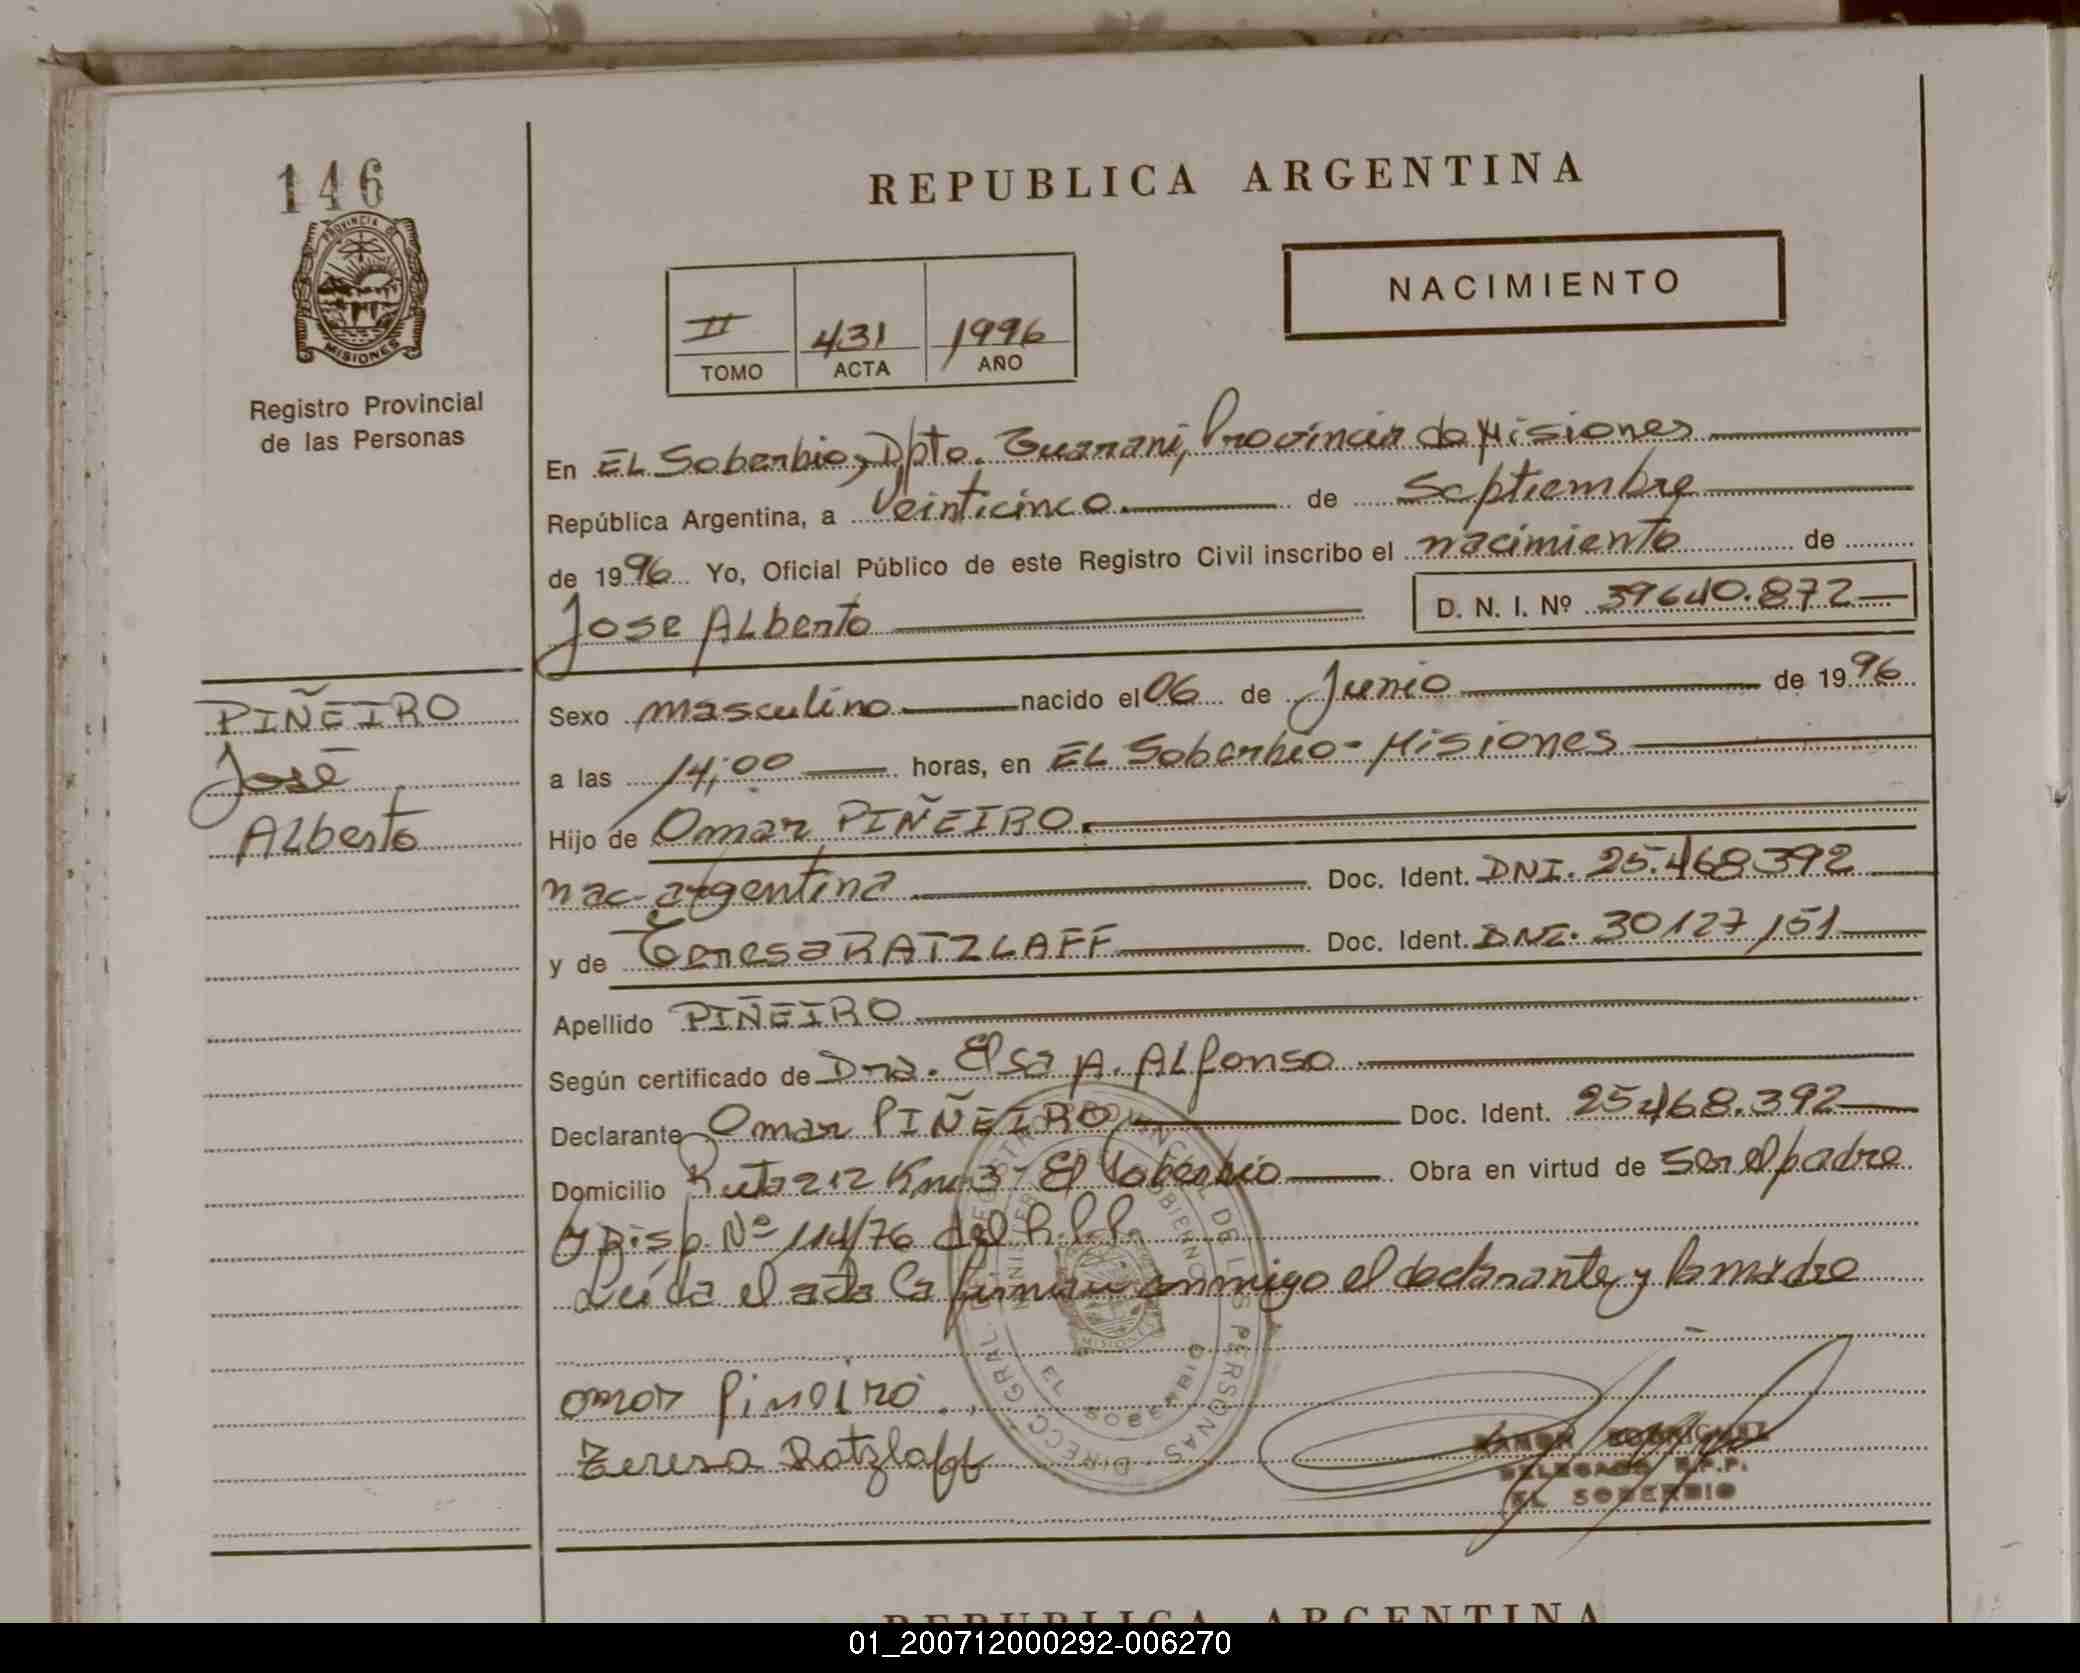 146
PROVINCIA DE
MISIONES
Registro Provincial
de las Personas
REPUBLICA ARGENTINA
NACIMIENTO
II 431 1996
TOMO ACTA AÑO
En EL Soberbio, Dpto. Guarani, Provincia de Misiones
República Argentina, a Veinticinco. de Septiembre
de 1996 Yo, Oficial Público de este Registro Civil inscribo el nacimiento de
Jose Alberto D. N. I. Nº 39640.872
PIÑEIRO
José
Alberto
Sexo masculino nacido el 06 de Junio de 1996
a las 14,00 horas, en EL Soberbio - Misiones
Hijo de Omar PIÑEIRO.
nac. argentina Doc. Ident. DNI. 25.468392
y de Teresa RATZLAFF Doc. Ident. DNI. 30127,151
Apellido PIÑEIRO
Según certificado de Dra. Elsa A. Alfonso
Declarante Omar PIÑEIRO Doc. Ident. 25468.392
Domicilio Ruta 212 Km 3 - El Soberbio Obra en virtud de ser el padre
y Disp. Nº 114/76 del R.P.P.
Leída el acta la firman conmigo el declarante y la madre
omar Pineiro
Teresa Ratzlaff
DIRECC. GRAL. DE LAS PERSONAS
EL SOBERBIO
RAMON RODRIGUEZ
DELEGADO R.P.P.
EL SOBERBIO
REPUBLICA ARGENTINA
01_200712000292-006270